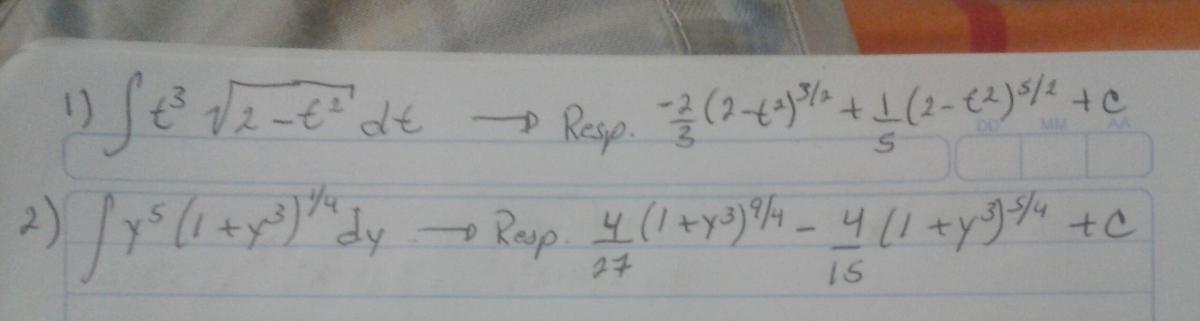 1) ∫ t³ √(2-t²) dt → Resp. -2/3 (2-t²)^3/2 + 1/5 (2-t²)^5/2 + C
DD MM AA
2) ∫ y⁵ (1+y³)^1/4 dy → Resp. 4/27 (1+y³)^9/4 - 4/15 (1+y³)^5/4 + C